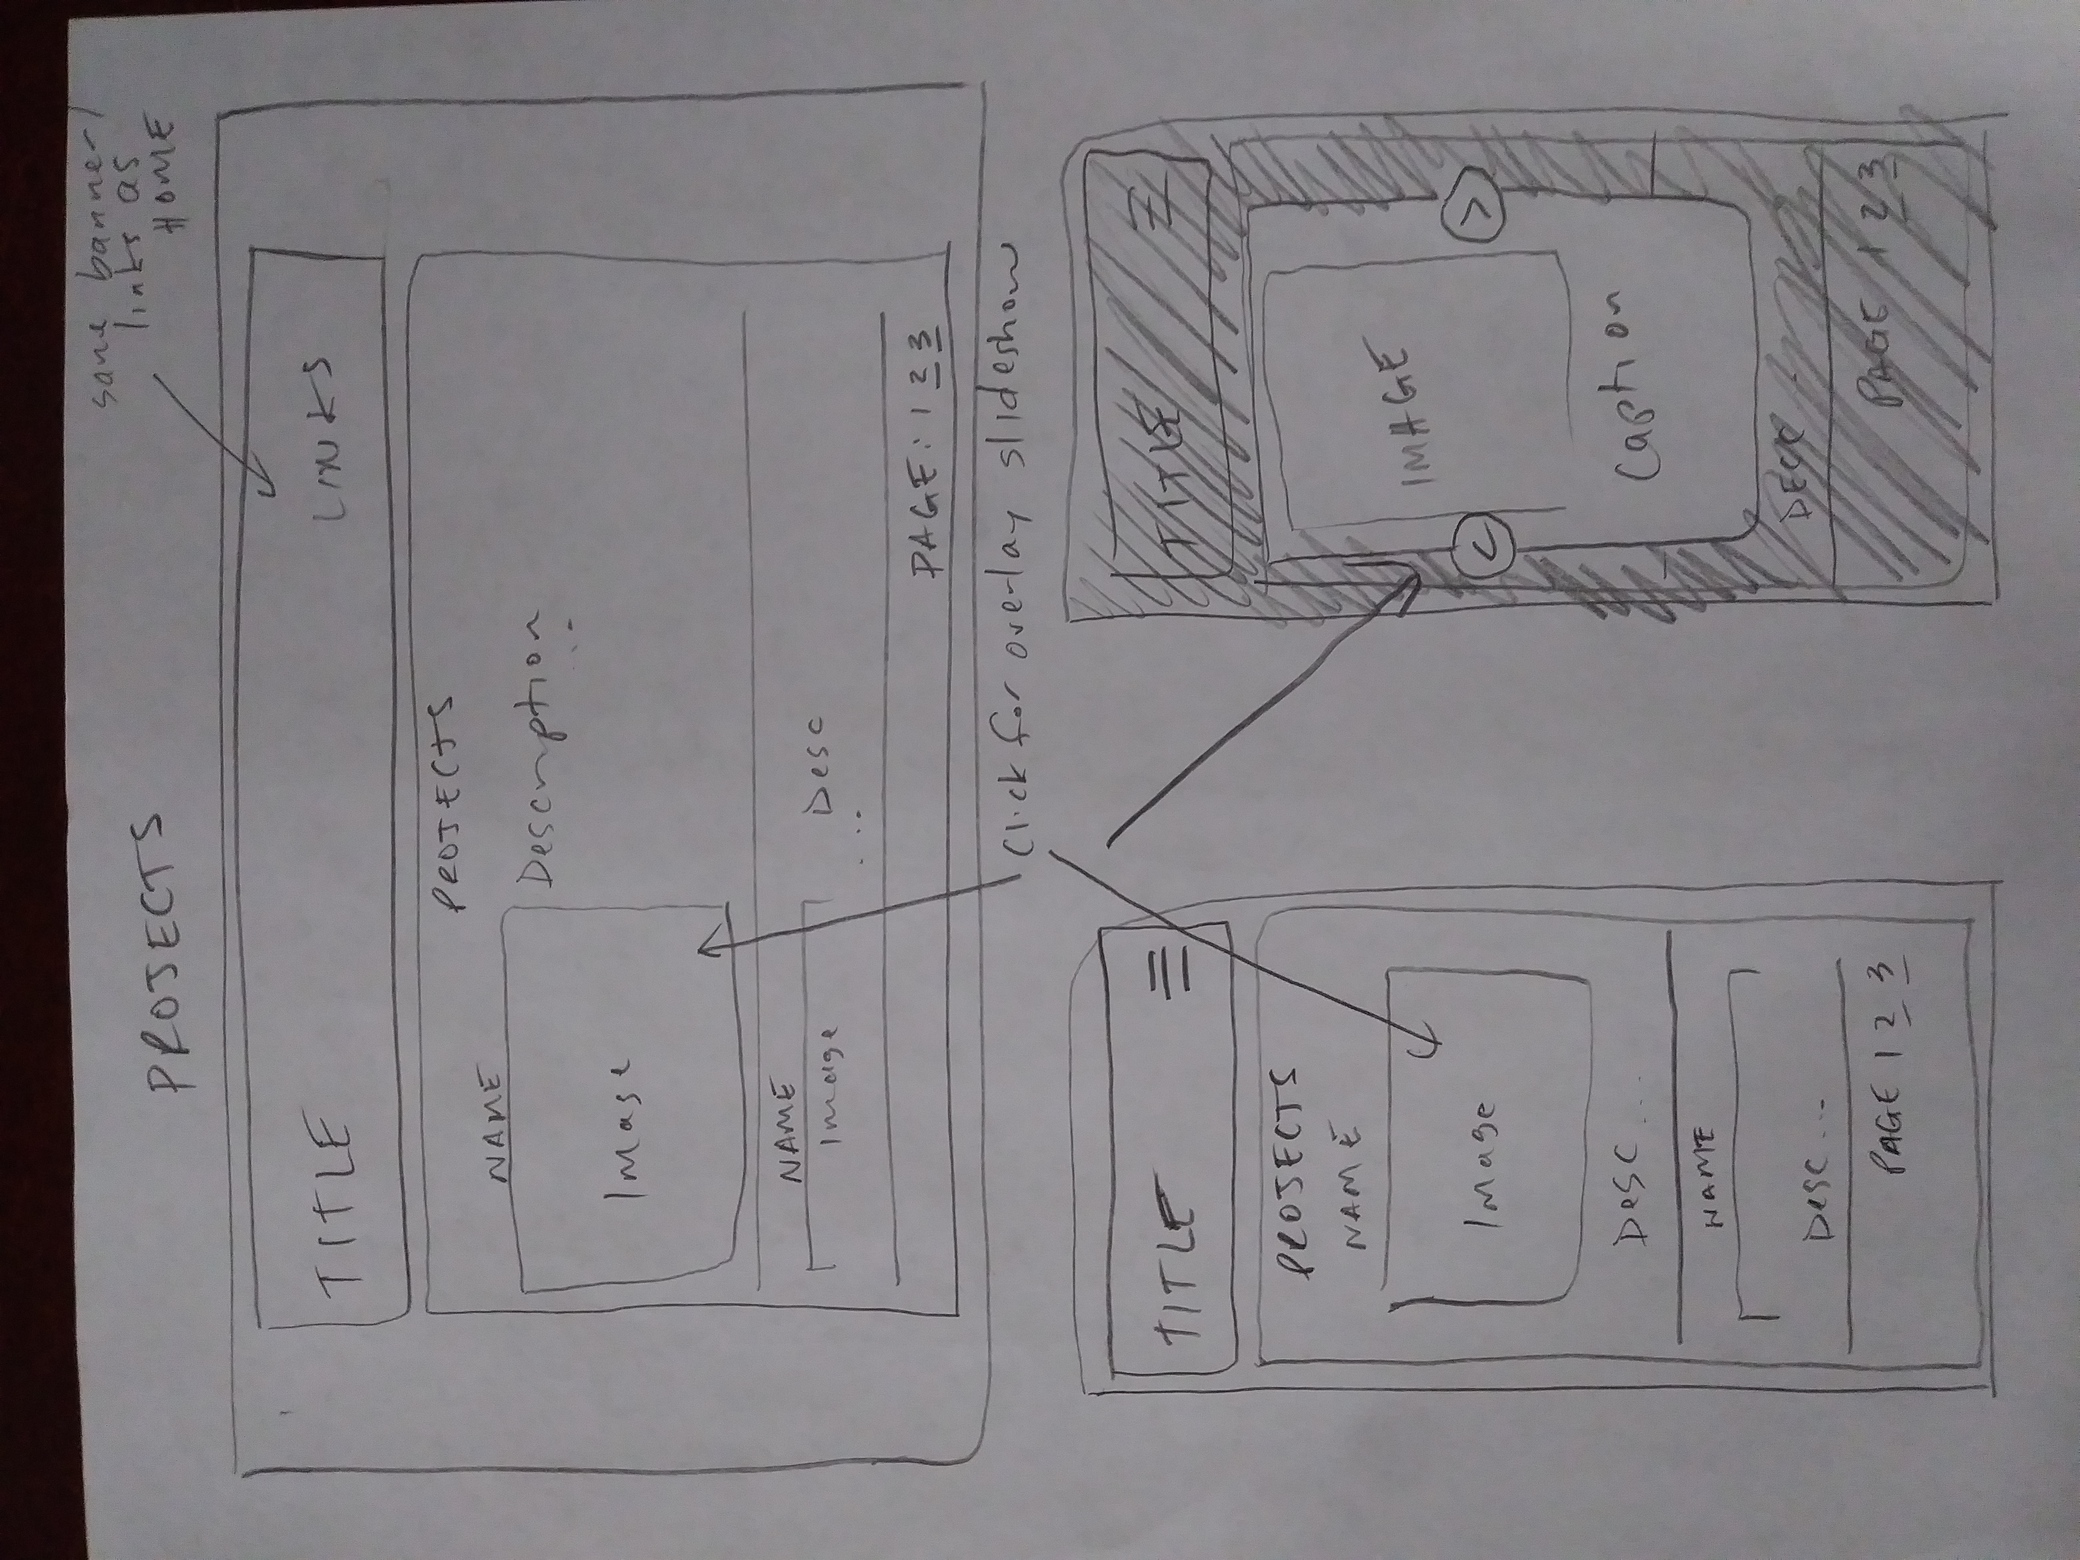 PROJECTS
same banner/
links as
HOME
TITLE
LINKS
PROJECTS
NAME
Image
Description
...
NAME
Image
Desc
...
PAGE: 1 2 3
Click for overlay slideshow
TITLE
PROJECTS
NAME
Image
Desc...
NAME
Desc...
PAGE 1 2 3
TITLE
IMAGE
<
>
Caption
DESC
PAGE 1 2 3